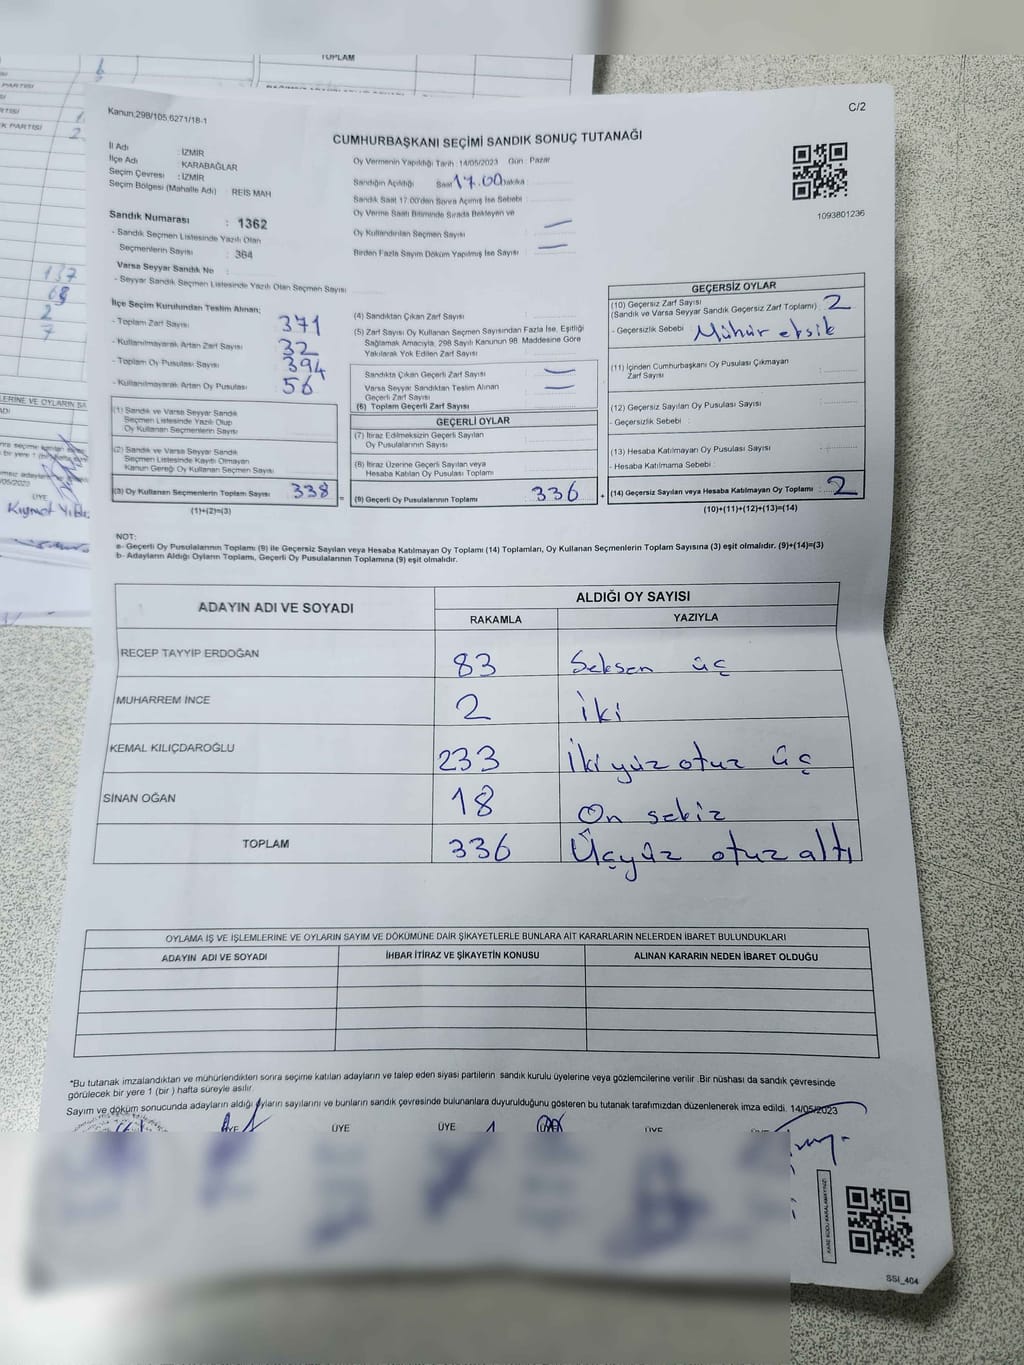 TOPLAM
Kanun.298/105,6271/18-1
C/2
CUMHURBAŞKANI SEÇİMİ SANDIK SONUÇ TUTANAĞI
İl Adı : İZMİR
İlçe Adı : KARABAĞLAR
Seçim Çevresi : İZMİR
Seçim Bölgesi (Mahalle Adı) : REİS MAH
Oy Vermenin Yapıldığı Tarih :14/05/2023 Gün : Pazar
Sandığın Açıldığı Saat 17.00 Dakika
Sandık Saat 17.00'den Sonra Açılmış İse Sebebi
Oy Verme Saati Bitiminde Sırada Bekleyen ve
Oy Kullandırılan Seçmen Sayısı
Birden Fazla Sayım Döküm Yapılmış İse Sayısı
1093801236
Sandık Numarası : 1362
- Sandık Seçmen Listesinde Yazılı Olan
Seçmenlerin Sayısı : 364
Varsa Seyyar Sandık No :
- Seyyar Sandık Seçmen Listesinde Yazılı Olan Seçmen Sayısı
İlçe Seçim Kurulundan Teslim Alınan;
- Toplam Zarf Sayısı 371
- Kullanılmayarak Artan Zarf Sayısı 32
- Toplam Oy Pusulası Sayısı 394
- Kullanılmayarak Artan Oy Pusulası 56
(1) Sandık ve Varsa Seyyar Sandık
Seçmen Listesinde Yazılı Olup
Oy Kullanan Seçmenlerin Sayısı
(2) Sandık ve Varsa Seyyar Sandık
Seçmen Listesinde Kayıtlı Olmayan
Kanun Gereği Oy Kullanan Seçmen Sayısı
(3) Oy Kullanan Seçmenlerin Toplam Sayısı 338 =
(1)+(2)=(3)
(4) Sandıktan Çıkan Zarf Sayısı
(5) Zarf Sayısı Oy Kullanan Seçmen Sayısından Fazla İse, Eşitliği
Sağlamak Amacıyla, 298 Sayılı Kanunun 98. Maddesine Göre
Yakılarak Yok Edilen Zarf Sayısı
Sandıkta Çıkan Geçerli Zarf Sayısı
Varsa Seyyar Sandıktan Teslim Alınan
Geçerli Zarf Sayısı
(6) Toplam Geçerli Zarf Sayısı
GEÇERLİ OYLAR
(7) İtiraz Edilmeksizin Geçerli Sayılan
Oy Pusulalarının Sayısı
(8) İtiraz Üzerine Geçerli Sayılan veya
Hesaba Katılan Oy Pusulası Toplamı
(9) Geçerli Oy Pusulalarının Toplamı 336 +
GEÇERSİZ OYLAR
(10) Geçersiz Zarf Sayısı
(Sandık ve Varsa Seyyar Sandık Geçersiz Zarf Toplamı) 2
- Geçersizlik Sebebi : Mühür eksik
(11) İçinden Cumhurbaşkanı Oy Pusulası Çıkmayan
Zarf Sayısı
(12) Geçersiz Sayılan Oy Pusulası Sayısı
- Geçersizlik Sebebi :
(13) Hesaba Katılmayan Oy Pusulası Sayısı
- Hesaba Katılmama Sebebi :
(14) Geçersiz Sayılan veya Hesaba Katılmayan Oy Toplamı 2
(10)+(11)+(12)+(13)=(14)
NOT:
a- Geçerli Oy Pusulalarının Toplamı (9) ile Geçersiz Sayılan veya Hesaba Katılmayan Oy Toplamı (14) Toplamları, Oy Kullanan Seçmenlerin Toplam Sayısına (3) eşit olmalıdır. (9)+(14)=(3)
b- Adayların Aldığı Oyların Toplamı, Geçerli Oy Pusulalarının Toplamına (9) eşit olmalıdır.
ADAYIN ADI VE SOYADI ALDIĞI OY SAYISI
RAKAMLA YAZIYLA
RECEP TAYYİP ERDOĞAN 83 Seksen üç
MUHARREM İNCE 2 İki
KEMAL KILIÇDAROĞLU 233 İkiyüz otuz üç
SİNAN OĞAN 18 On sekiz
TOPLAM 336 Üçyüz otuz altı
OYLAMA İŞ VE İŞLEMLERİNE VE OYLARIN SAYIM VE DÖKÜMÜNE DAİR ŞİKAYETLERLE BUNLARA AİT KARARLARIN NELERDEN İBARET BULUNDUKLARI
ADAYIN ADI VE SOYADI İHBAR İTİRAZ VE ŞİKAYETİN KONUSU ALINAN KARARIN NEDEN İBARET OLDUĞU
*Bu tutanak imzalandıktan ve mühürlendikten sonra seçime katılan adayların ve talep eden siyasi partilerin sandık kurulu üyelerine veya gözlemcilerine verilir .Bir nüshası da sandık çevresinde
görülecek bir yere 1 (bir ) hafta süreyle asılır.
Sayım ve döküm sonucunda adayların aldığı oyların sayılarını ve bunların sandık çevresinde bulunanlara duyurulduğunu gösteren bu tutanak tarafımızdan düzenlenerek imza edildi. 14/05/2023
ÜYE ÜYE ÜYE
SSI_404
137
69
2
7
ÜYE
Kıymet